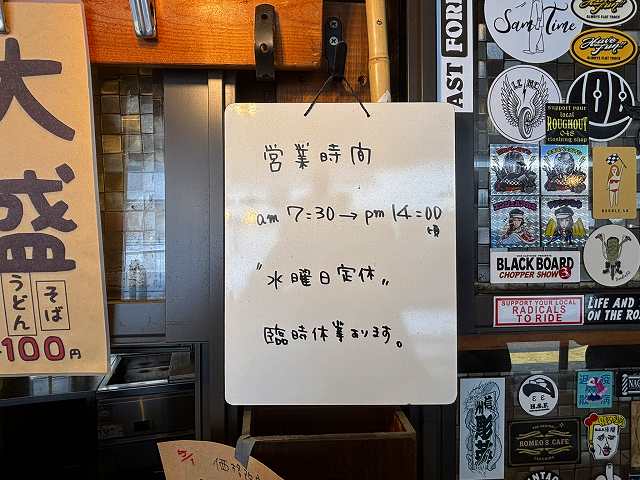 大盛
そば
うどん
100円
営業時間
am 7:30→pm 14:00
頃
"水曜日定休"
臨時休業あります。
5/1
FAST FOR
Sam Time
ALWAYS FLAT TRACK
Have Fun!!
ALWAYS FLAT TRACK
support your
local
ROUGHOUT
048
clothing shop
BLACK BOARD
CHOPPER SHOW 3
SUPPORT YOUR LOCAL
RADICALS
TO RIDE
LIFE AND
ON THE RO
H.S.F.
ROMEO'S CAFE